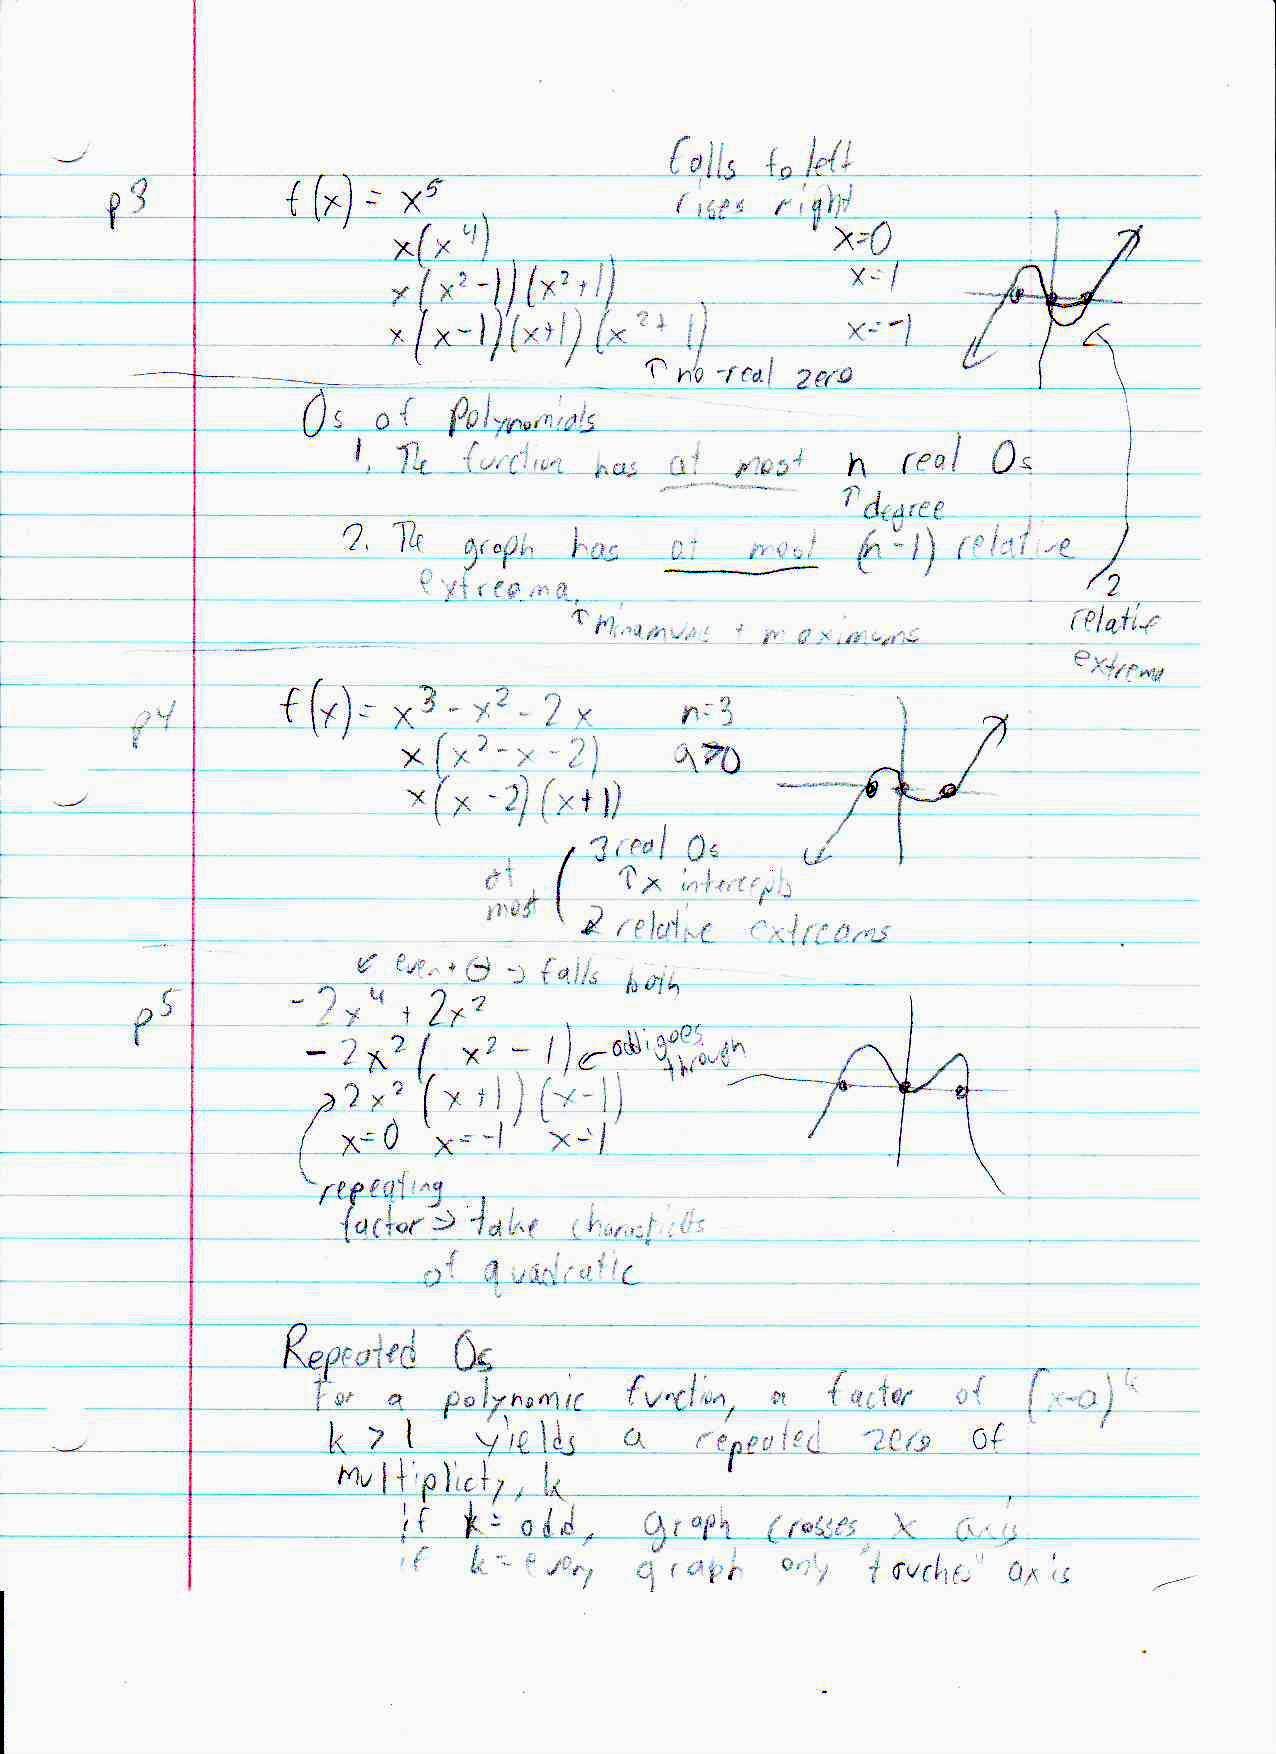 falls to left
p3 f(x) = x⁵ rises right
x(x⁴) x=0
x(x²-1)(x²+1) x=1
x(x-1)(x+1)(x²+1) x=-1
↑ no real zero
0s of Polynomials
1. The function has at most n real 0s
↑ degree
2. The graph has at most (n-1) relative
extreama. 2
↑ minamums + maximums relative
extrema
p4 f(x) = x³ - x² - 2x n=3
x(x² - x - 2) a>0
x(x - 2)(x+1)
3 real 0s
at ↑ x intercepts
most 2 relative extreams
↙ even + ⊖ → falls both
p5 -2x⁴ + 2x²
-2x²( x² - 1) ← odd goes
through
2x² (x+1)(x-1)
x=0 x=-1 x=1
repeating
factor → take
of quadratic
Repeated 0s
For a polynomic function, a factor of (x-a)ᵏ
k > 1 yields a repeated zero of
multiplicty, k
if k = odd, graph crosses x axis
if k = even, graph only "touches" axis